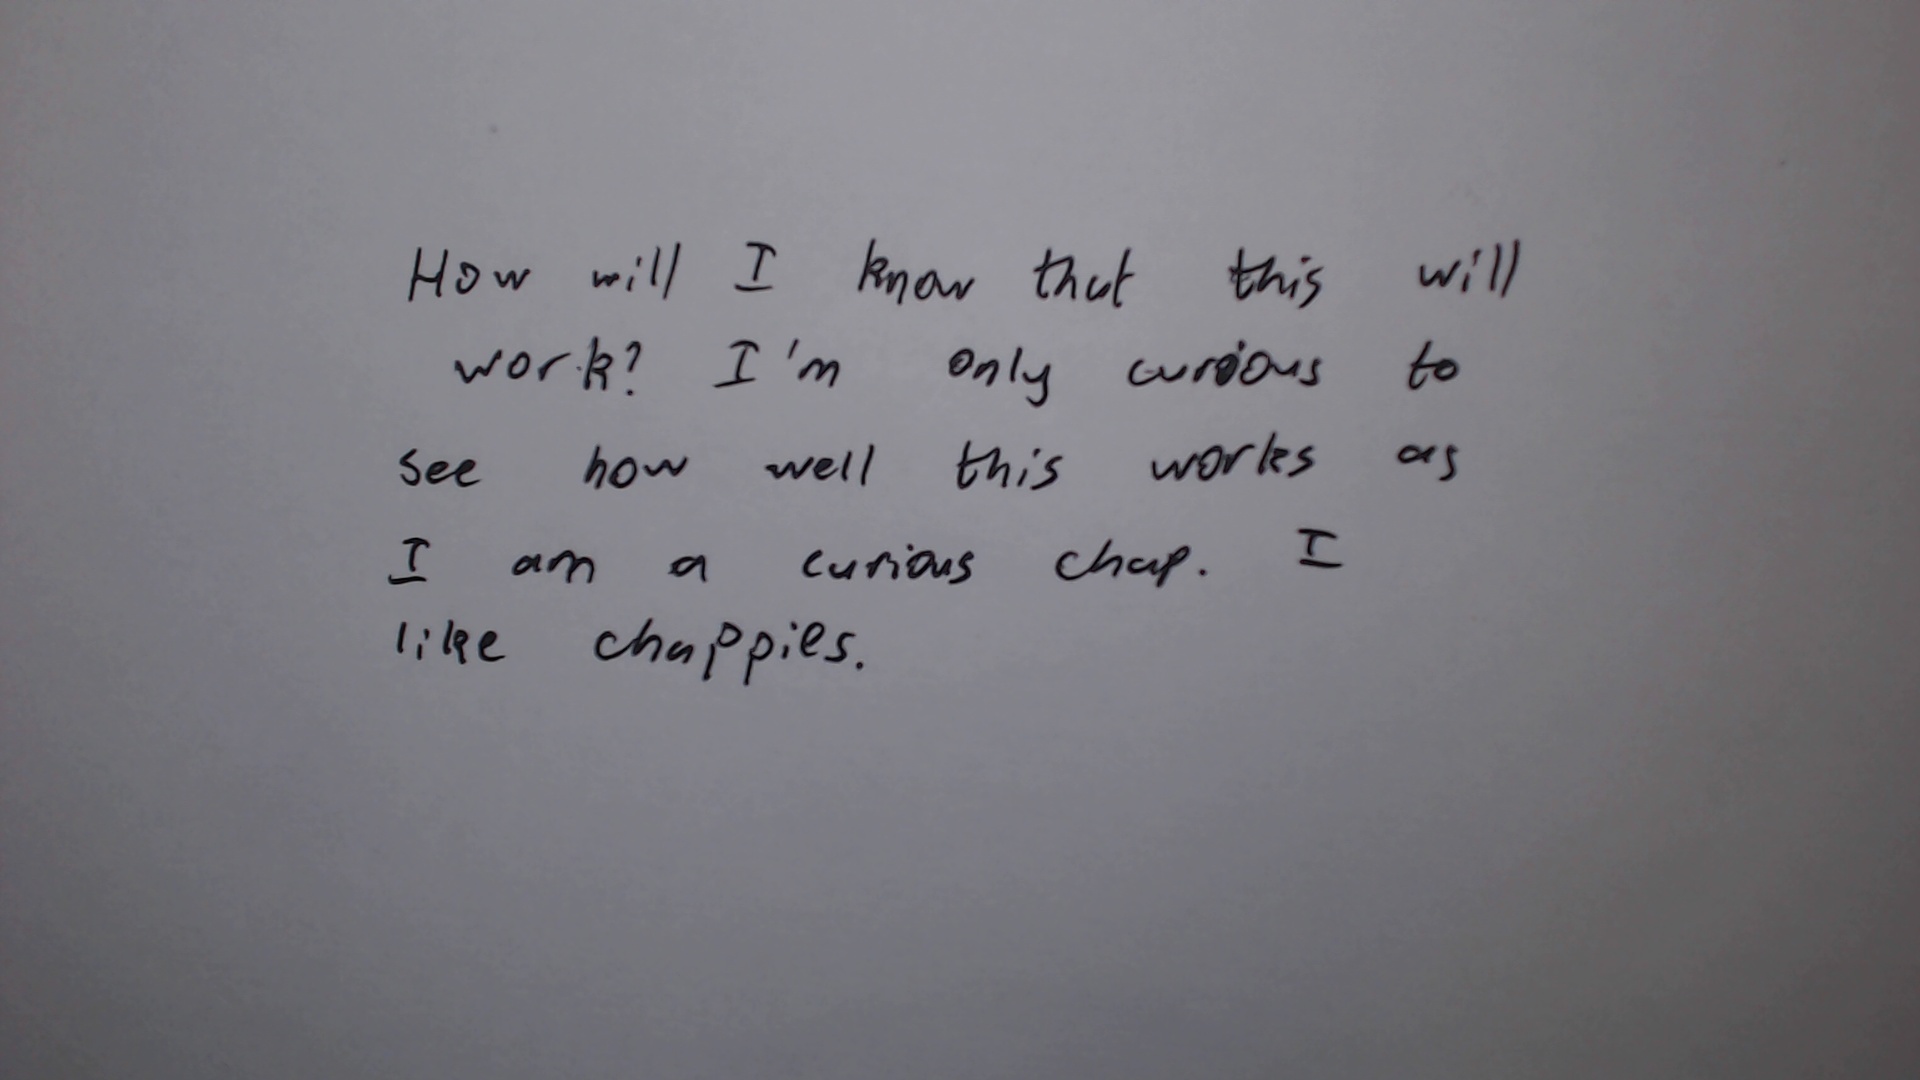 How will I know that this will
work? I'm only curious to
see how well this works as
I am a curious chap. I
like chappies.